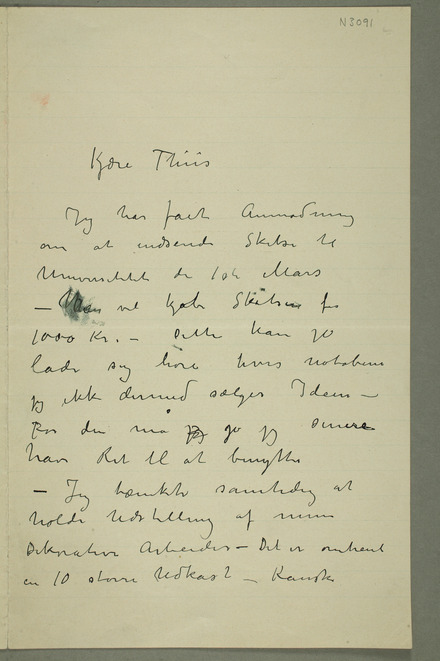 N3091
Kjære Thiis
Jeg har faet Anmodning
om at indsende Skitse til
Universitetet de 1ste Mars
– Man vil kjøbe Skitsen for
1000 Kr. – Dette kan jo
lade sig høre hvis notabene
jeg ikke dermed sælger Ideen –
For den må jo jeg senere
have Ret til at benytte
– Jeg tænkte samtidig at
holde Udstilling af mine
Dekorative Arbeider – Det er omtrent
en 10 større Udkast – Kanske